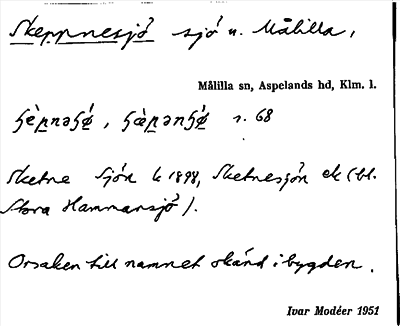 Skeppnesjö sjö n. Målilla,
Målilla sn, Aspelands hd, Klm. l.
s. 68
Sketne Sjön k 1898, Sketnesjön ek (bl.
Stora Hammarsjö).
Orsaken till namnet okänd i bygden.
Ivar Modéer 1951